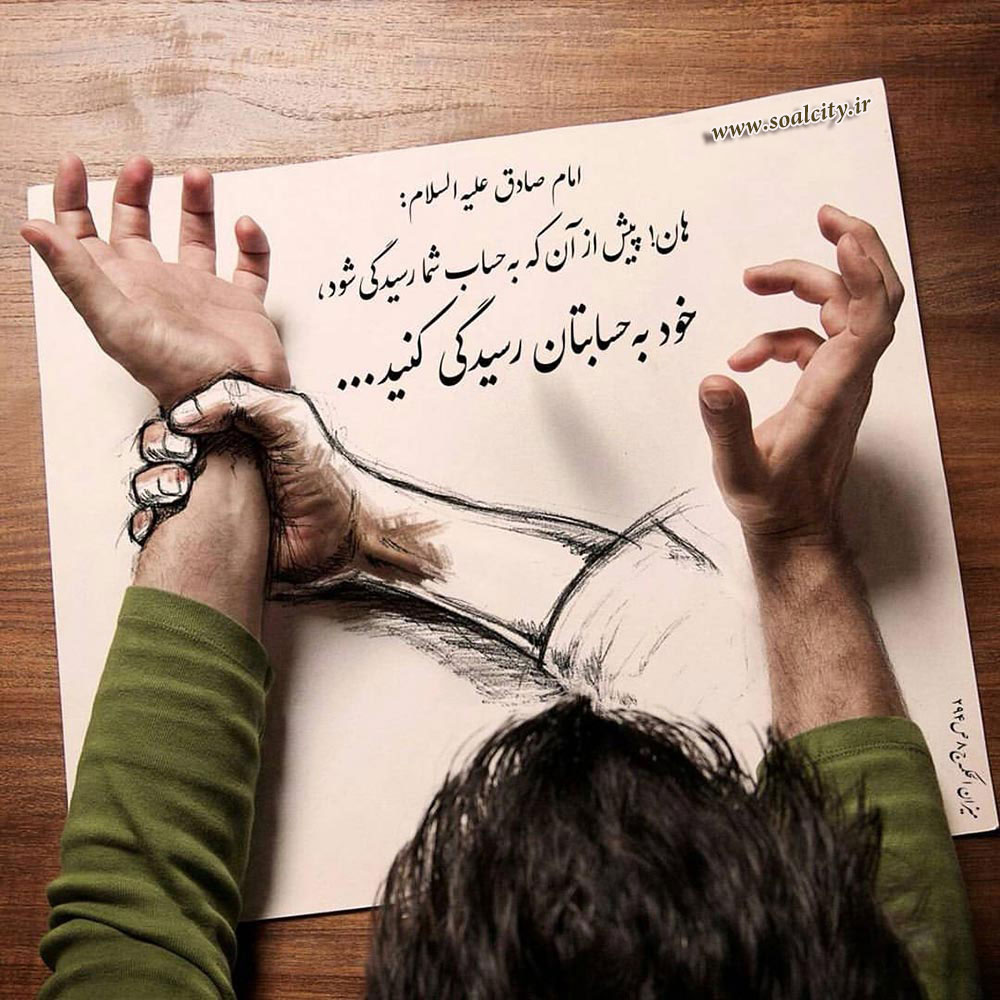 www.soalcity.ir
امام صادق علیه السلام:
هان! پیش از آن که به حساب شما رسیدگی شود،
خود به حسابتان رسیدگی کنید...
میزان الحکمه ج۸ ص۲۹۴